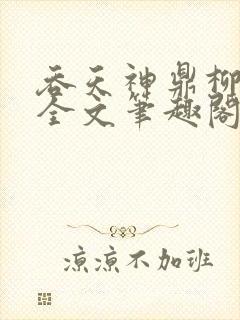 吞天神鼎柳
全文笔趣阁
凉凉不加班